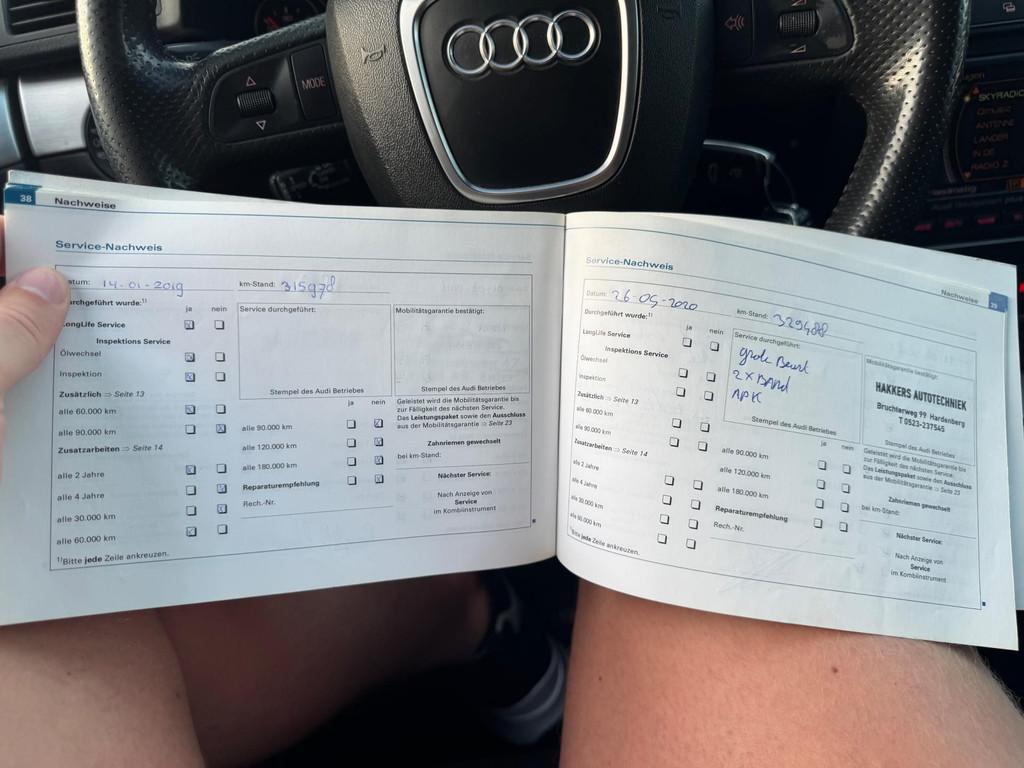 MODE
SKYRADIO
ANTENNE
LANDER
IN DE
RADIO 2
38
Nachweise
Service-Nachweis
Datum: 14-01-2019
km-Stand: 315978
Durchgeführt wurde:¹⁾
ja nein
LongLife Service
Inspektions Service
Ölwechsel
Inspektion
Zusätzlich ⇒ Seite 13
alle 60.000 km
alle 90.000 km
Zusatzarbeiten ⇒ Seite 14
alle 2 Jahre
alle 4 Jahre
alle 30.000 km
alle 60.000 km
¹⁾Bitte jede Zeile ankreuzen.
Service durchgeführt:
Stempel des Audi Betriebes
ja nein
alle 90.000 km
alle 120.000 km
alle 180.000 km
Reparaturempfehlung
Rech.-Nr.
Mobilitätsgarantie bestätigt:
Stempel des Audi Betriebes
Geleistet wird die Mobilitätsgarantie bis
zur Fälligkeit des nächsten Service.
Das Leistungspaket sowie den Ausschluss
aus der Mobilitätsgarantie ⇒ Seite 23
Zahnriemen gewechselt
bei km-Stand:
Nächster Service:
Nach Anzeige von
Service
im Kombiinstrument
Nachweise
39
Service-Nachweis
Datum: 26-05-2020
km-Stand: 329488
Durchgeführt wurde:¹⁾
ja nein
LongLife Service
Inspektions Service
Ölwechsel
Inspektion
Zusätzlich ⇒ Seite 13
alle 60.000 km
alle 90.000 km
Zusatzarbeiten ⇒ Seite 14
alle 2 Jahre
alle 4 Jahre
alle 30.000 km
alle 60.000 km
¹⁾Bitte jede Zeile ankreuzen.
Service durchgeführt:
grote Beurt
2x Band
APK
Stempel des Audi Betriebes
ja nein
alle 90.000 km
alle 120.000 km
alle 180.000 km
Reparaturempfehlung
Rech.-Nr.
Mobilitätsgarantie bestätigt:
HAKKERS AUTOTECHNIEK
Bruchterweg 99 Hardenberg
T 0523-237545
Stempel des Audi Betriebes
Geleistet wird die Mobilitätsgarantie bis
zur Fälligkeit des nächsten Service.
Das Leistungspaket sowie den Ausschluss
aus der Mobilitätsgarantie ⇒ Seite 23
Zahnriemen gewechselt
bei km-Stand:
Nächster Service:
Nach Anzeige von
Service
im Kombiinstrument